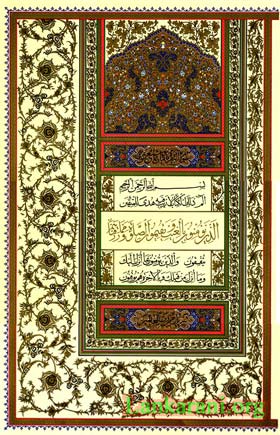 بسم الله الرحمن الرحيم
الم ذلك الكتاب لا ريب فيه هدى للمتقين
الذين يؤمنون بالغيب ويقيمون الصلوة ومما رزقناهم
ينفقون والذين يؤمنون بما أنزل إليك
وما أنزل من قبلك وبالآخرة هم يوقنون
Lankarani.org